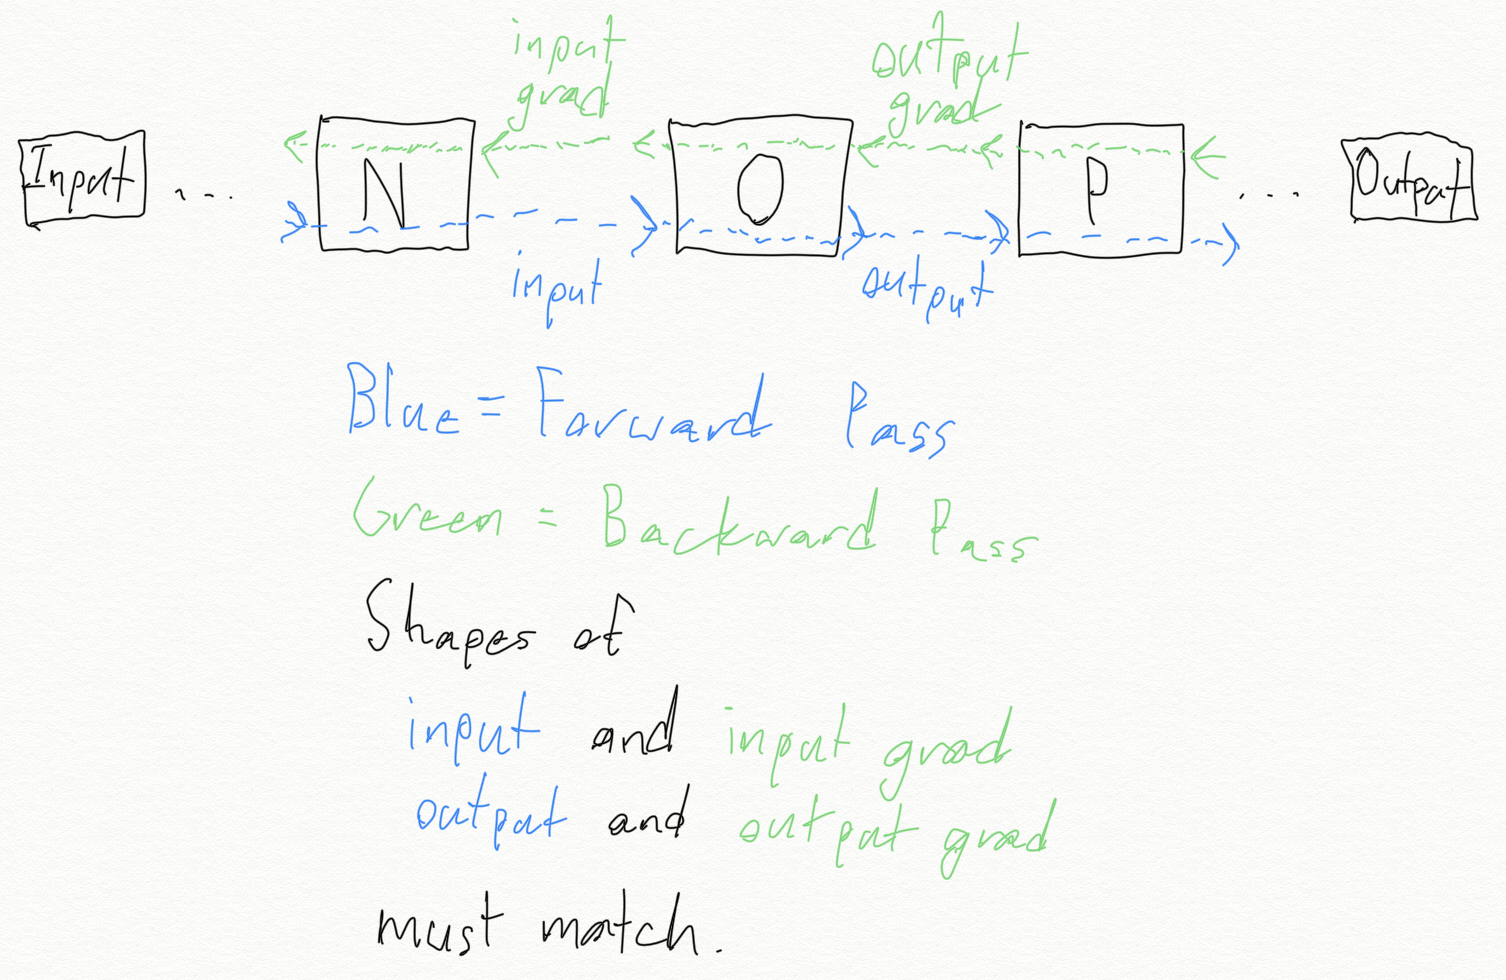 input
grad
output
grad
Input ... N O P ... Output
input
output
Blue = Forward Pass
Green = Backward Pass
Shapes of
input and input grad
output and output grad
must match.